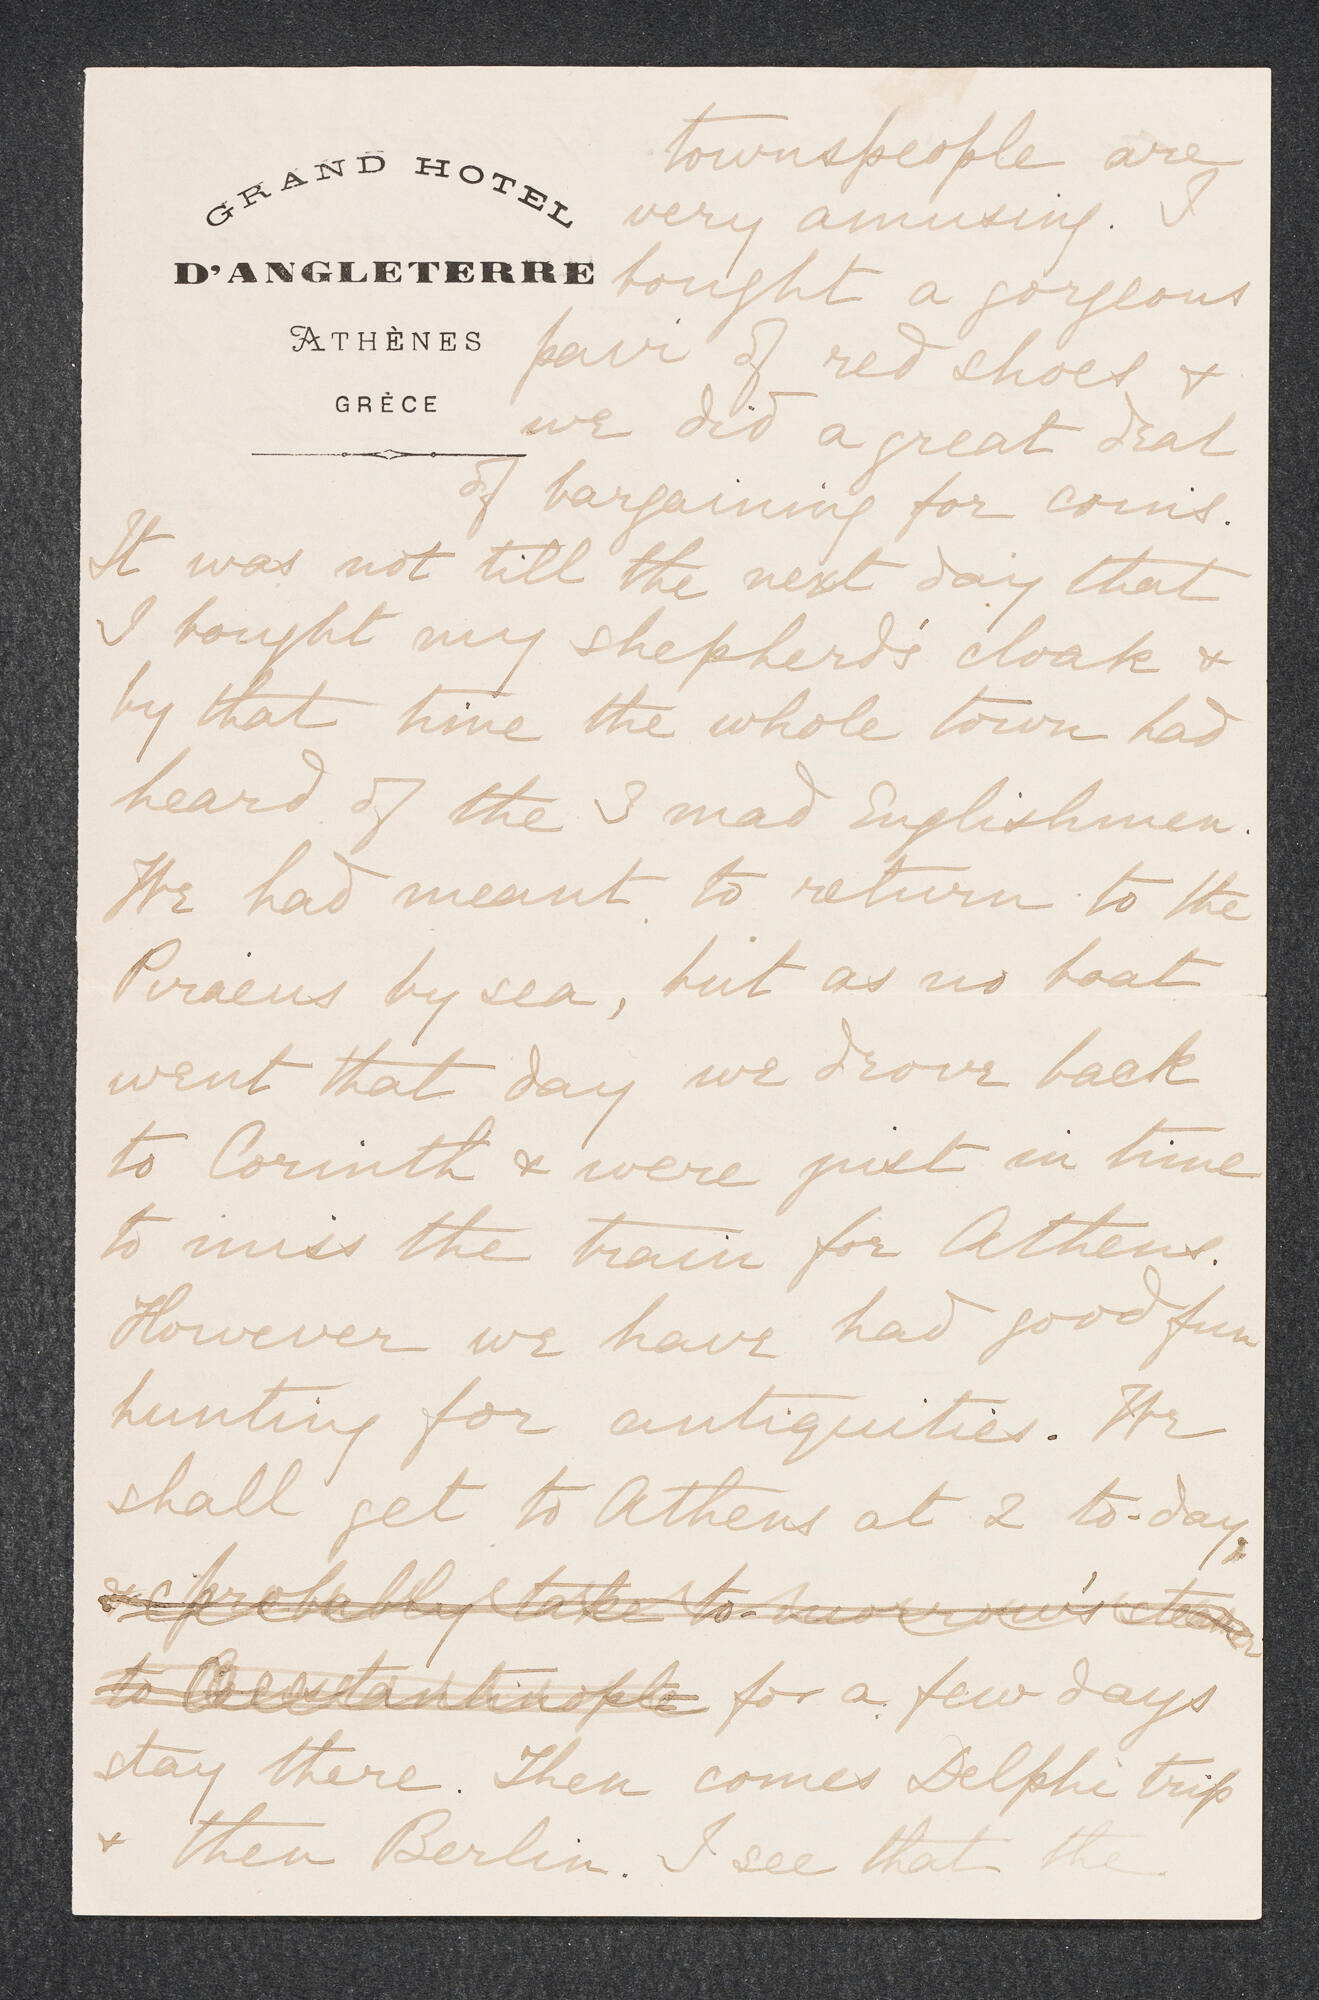 GRAND HOTEL
D'ANGLETERRE
ATHÈNES
GRÈCE
townspeople are
very amusing. I
bought a gorgeous
pair of red shoes &
we did a great deal
of bargaining for coins.
It was not till the next day that
I bought my shepherd's cloak &
by that time the whole town had
heard of the 3 mad Englishmen.
We had meant to return to the
Piraeus by sea, but as no boat
went that day we drove back
to Corinth & were just in time
to miss the train for Athens.
However we have had good fun
hunting for antiquities. We
shall get to Athens at 2 to-day,
& probably take to-morrow's steamer
to Constantinople for a few days
stay there. Then comes Delphi trip
& then Berlin. I see that the